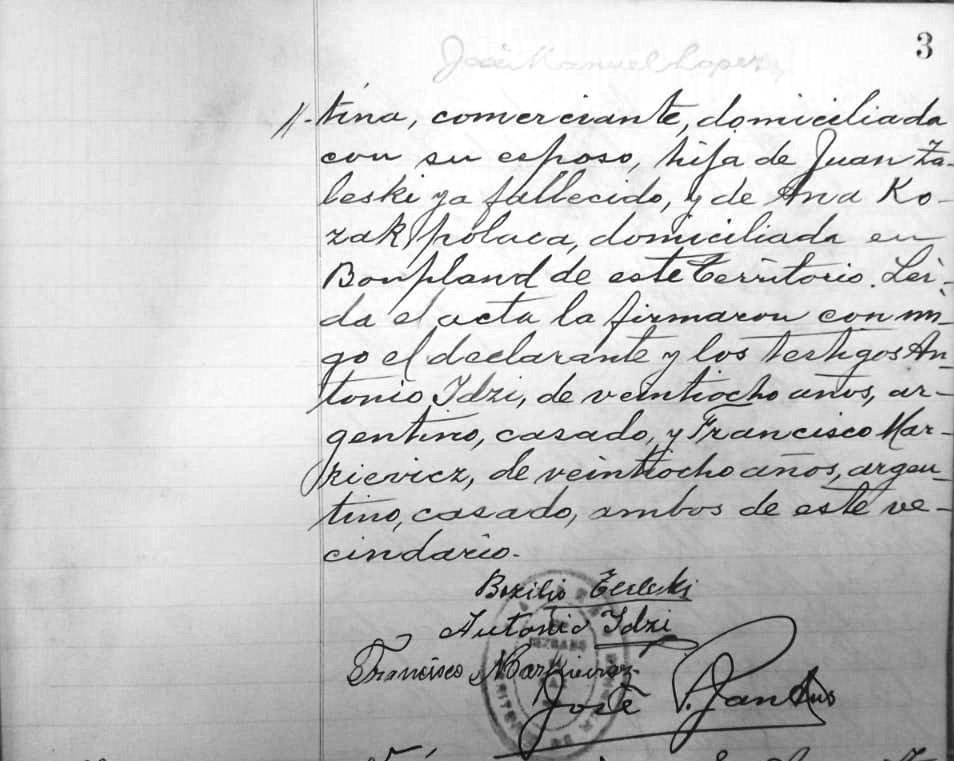 3
José Manuel Lopez
//-tina, comerciante, domiciliada
con su esposo, hija de Juan Za-
leski ya fallecido, y de Ana Ko-
zak polaca, domiciliada en
Bonpland de este Territorio. Leí-
da el acta la firmaron con mi-
go el declarante y los testigos An-
tonio Idzi, de veintiocho años, ar-
gentino, casado, y Francisco Mar-
kievicz, de veintiocho años, argen-
tino, casado, ambos de este ve-
cindario.
Bazilio
Antonio Idzi
Francisco Markievicz
José P.